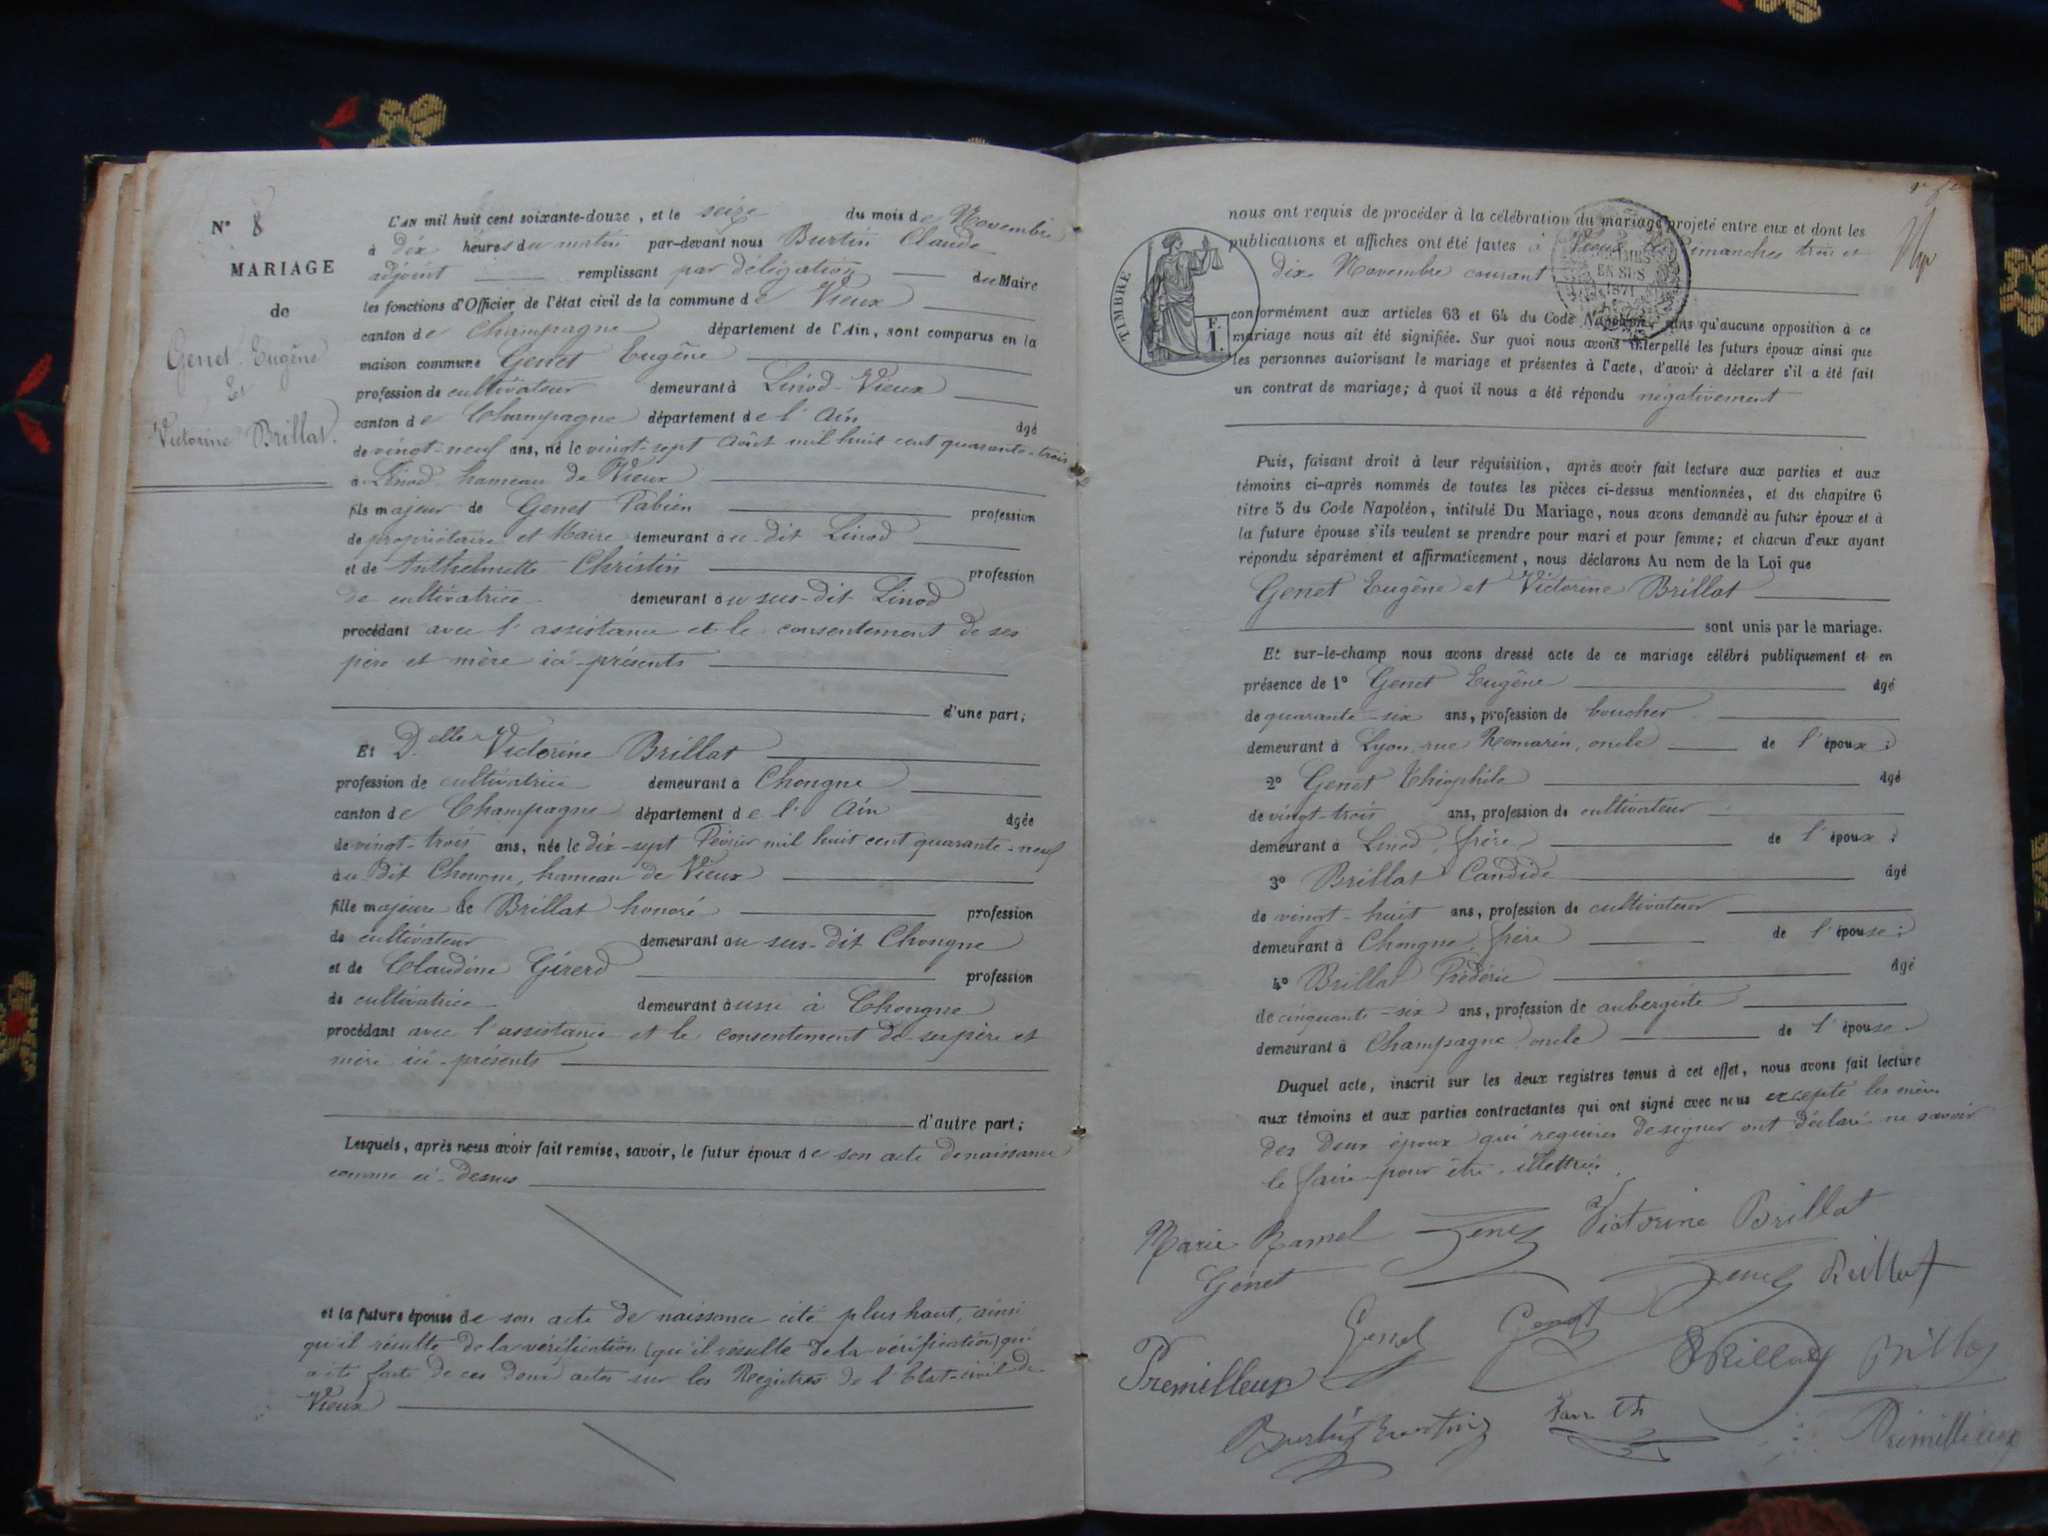 N° 8
MARIAGE
de
Genet Eugène
Et
Victorine Brillat.
L'AN mil huit cent soixante-douze, et le seize du mois de Novembre
à dix heures du matin par-devant nous Burtin Claude
adjoint remplissant par délégation du Maire
les fonctions d'Officier de l'état civil de la commune de Vieux
canton de Champagne département de l'Ain, sont comparus en la
maison commune Genet Eugène
profession de cultivateur demeurant à Linod-Vieux
canton de Champagne département de l'Ain âgé
de vingt-neuf ans, né le vingt-sept Août mil huit cent quarante-trois
à Linod hameau de Vieux
fils majeur de Genet Fabien profession
de propriétaire et Maire demeurant à ce-dit Linod
et de Anthelmette Christin profession
de cultivatrice demeurant au sus-dit Linod
procédant avec l'assistance et le consentement de ses
père et mère ici-présents
d'une part;
Et D.elle Victorine Brillat
profession de cultivatrice demeurant à Chongne
canton de Champagne département de l'Ain âgée
de vingt-trois ans, née le dix-sept Février mil huit cent quarante-neuf
au dit Chongne, hameau de Vieux
fille majeure de Brillat honoré profession
de cultivateur demeurant au sus-dit Chongne
et de Claudine Gérerd profession
de cultivatrice demeurant aussi à Chongne
procédant avec l'assistance et le consentement de ses père et
mère ici-présents
d'autre part;
Lesquels, après nous avoir fait remise, savoir, le futur époux de son acte de naissance
comme ci-dessus
et la future épouse de son acte de naissance cité plus haut, ainsi
qu'il résulte de la vérification (qu'il résulte de la vérification) qui
a été faite de ces deux actes sur les Registres de l'Etat-civil de
Vieux
nous ont requis de procéder à la célébration du mariage projeté entre eux et dont les
publications et affiches ont été faites à Vieux les Dimanches trois et
dix Novembre courant
TIMBRE
F.
1.
EN SUS
1871
conformément aux articles 63 et 64 du Code Napoléon, sans qu'aucune opposition à ce
mariage nous ait été signifiée. Sur quoi nous avons interpellé les futurs époux ainsi que
les personnes autorisant le mariage et présentes à l'acte, d'avoir à déclarer s'il a été fait
un contrat de mariage; à quoi il nous a été répondu négativement
Puis, faisant droit à leur réquisition, après avoir fait lecture aux parties et aux
témoins ci-après nommés de toutes les pièces ci-dessus mentionnées, et du chapitre 6
titre 5 du Code Napoléon, intitulé Du Mariage, nous avons demandé au futur époux et à
la future épouse s'ils veulent se prendre pour mari et pour femme; et chacun d'eux ayant
répondu séparément et affirmativement, nous déclarons Au nom de la Loi que
Genet Eugène et Victorine Brillat
sont unis par le mariage.
Et sur-le-champ nous avons dressé acte de ce mariage célébré publiquement et en
présence de 1° Genet Eugène âgé
de quarante-six ans, profession de boucher
demeurant à Lyon, rue Romarin, oncle de l'époux;
2° Genet Théophile âgé
de vingt-trois ans, profession de cultivateur
demeurant à Linod, frère de l'époux;
3° Brillat Candide âgé
de vingt-huit ans, profession de cultivateur
demeurant à Chongne, frère de l'épouse;
4° Brillat Frédéric âgé
de cinquante-six ans, profession de aubergiste
demeurant à Champagne oncle de l'épouse.
Duquel acte, inscrit sur les deux registres tenus à cet effet, nous avons fait lecture
aux témoins et aux parties contractantes qui ont signé avec nous excepté les mères
des deux époux qui requises de signer ont déclaré ne savoir
le faire pour être illettrées.
Marie Ramel Genet Victorine Brillat
Genet Genet Brillat
Genet Genot
Premilleux Brillat Brillat
Burtin Premillieux